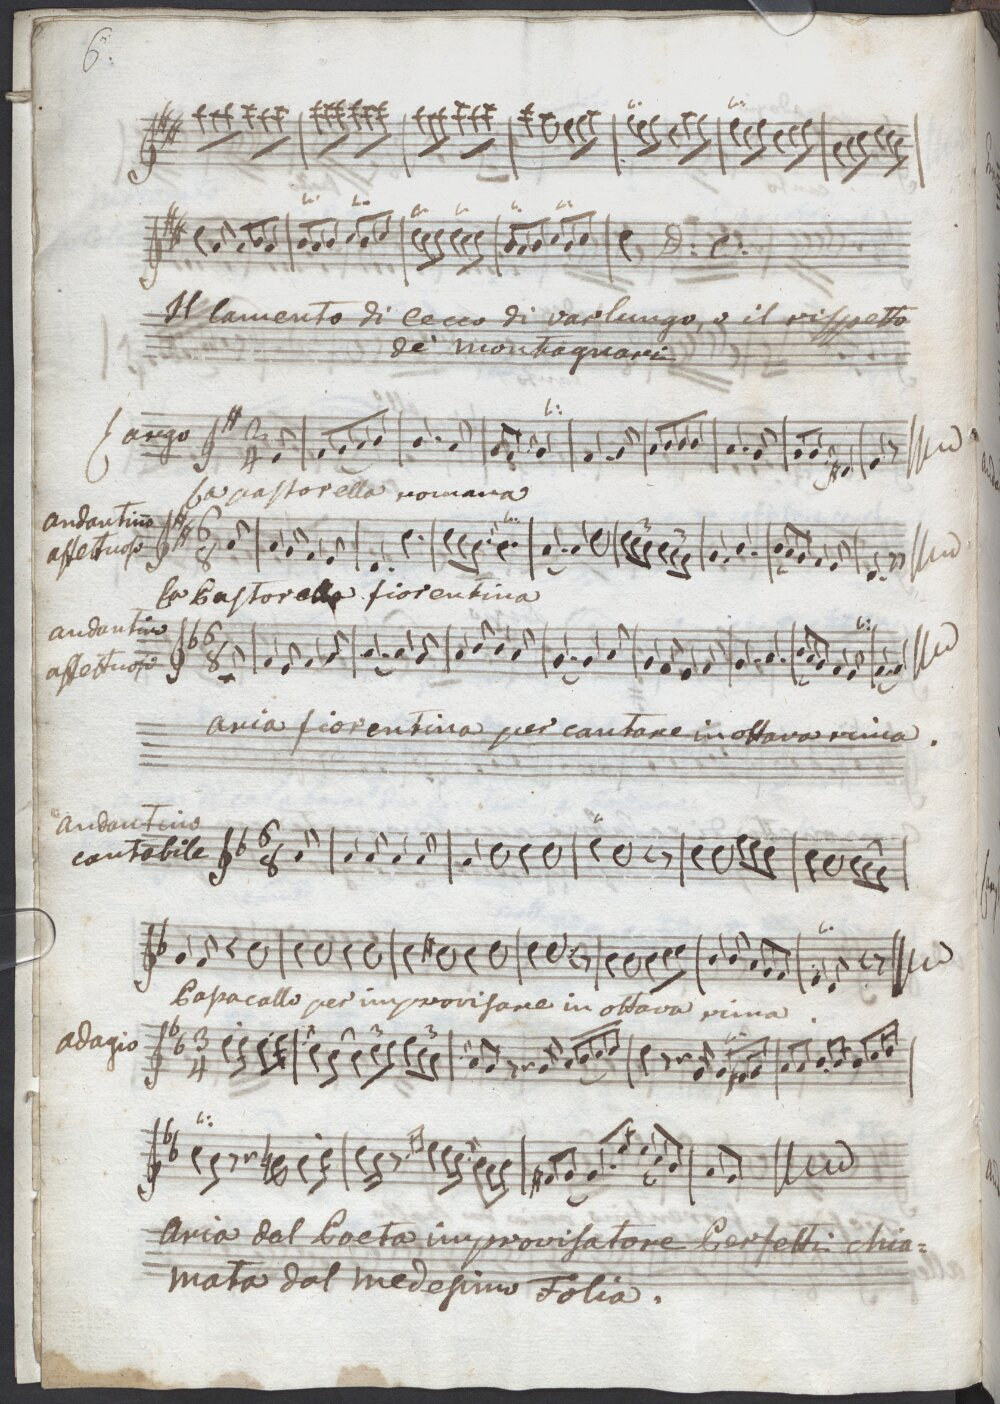 6.
D. C.
Il lamento di Cecco di varlungo, o il rispetto
de' montagnari
Largo
La pastorella romana
andantino
affettuoso
la Pastorella fiorentina
andantino
affettuoso
aria fiorentina per cantare in ottava rima.
andantino
cantabile
Papacallo per improvisare in ottava rima.
adagio
Aria dal Poeta improvisatore Perfetti chia=
mata dal medesimo Folia.